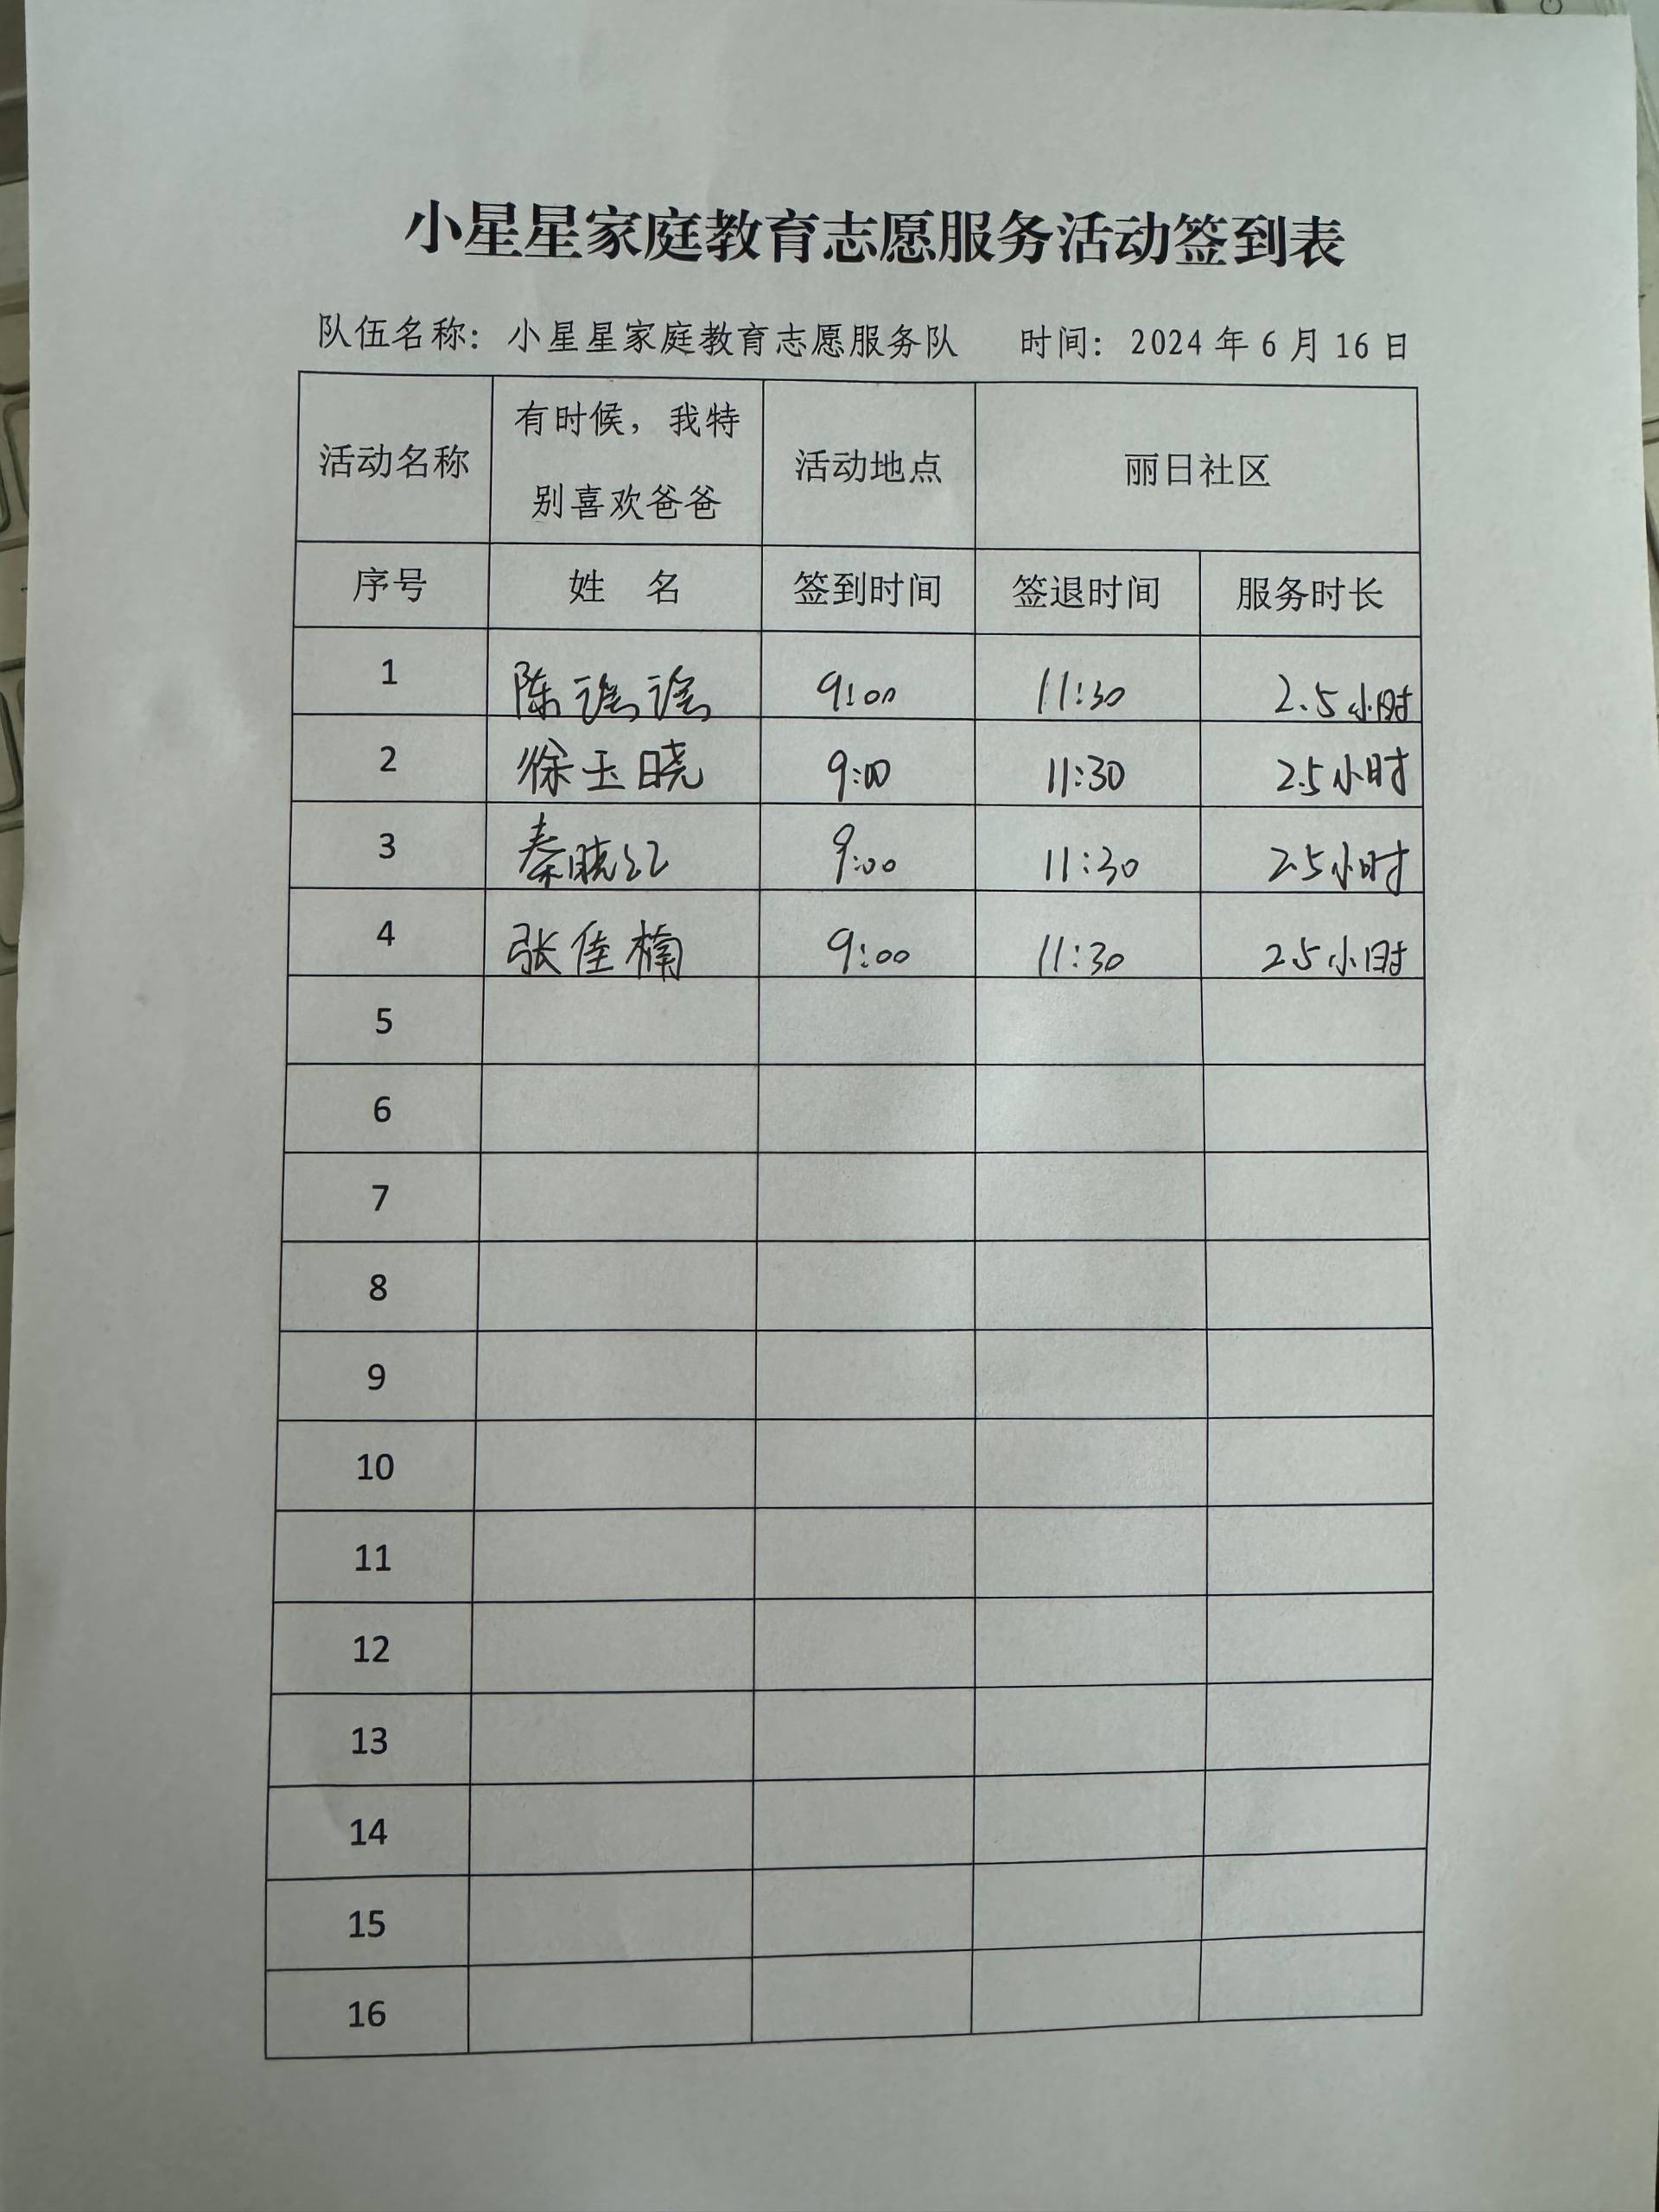 小星星家庭教育志愿服务活动签到表
队伍名称：小星星家庭教育志愿服务队 时间：2024年6月16日
活动名称 有时候，我特别喜欢爸爸 活动地点 丽日社区
序号 姓 名 签到时间 签退时间 服务时长
1 陈谣谣 9:00 11:30 2.5小时
2 徐玉晓 9:00 11:30 2.5小时
3 秦晓红 9:00 11:30 2.5小时
4 张佳楠 9:00 11:30 2.5小时
5
6
7
8
9
10
11
12
13
14
15
16